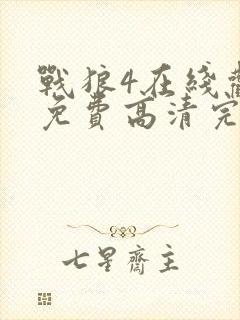 戰狼4在綫
免費高清完
七星齋主